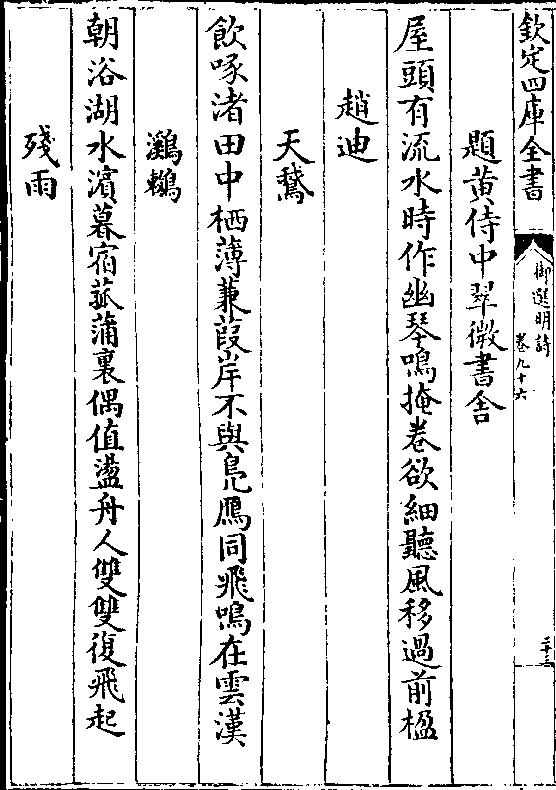 欽定四庫全書
御選明詩
卷九十六
二十三
題黄侍中翠微書舎
屋頭有流水時作幽琴鳴掩卷欲細聽風移過前楹
趙迪
天鵞
飲啄渚田中栖薄蒹葭岸不與鳬鴈同飛鳴在雲漢
鸂鶒
朝浴湖水濱暮宿菰蒲裏偶值盪舟人雙雙復飛起
殘雨